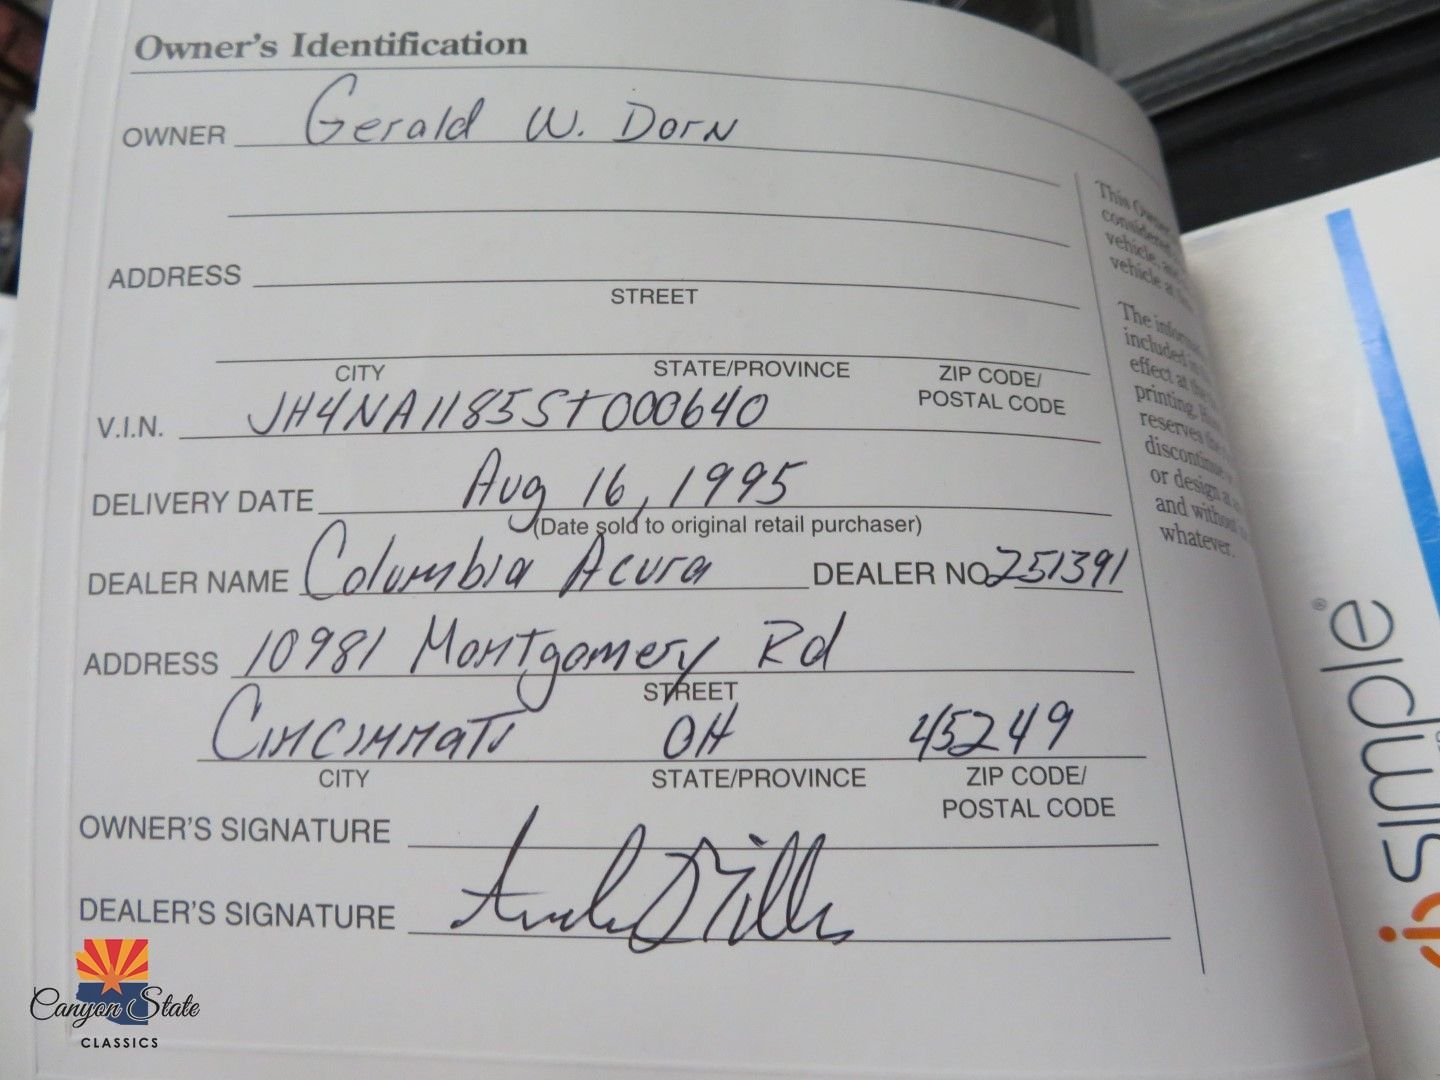 Owner's Identification
OWNER Gerald W. Dorn
ADDRESS
STREET
CITY STATE/PROVINCE ZIP CODE/
POSTAL CODE
V.I.N. JH4NA1185ST000640
DELIVERY DATE Aug 16, 1995
(Date sold to original retail purchaser)
DEALER NAME Columbia Acura DEALER NO 251391
ADDRESS 10981 Montgomery Rd
STREET
Cincinnati OH 45249
CITY STATE/PROVINCE ZIP CODE/
POSTAL CODE
OWNER'S SIGNATURE
DEALER'S SIGNATURE
This Owner
considered
vehicle, and
vehicle at
The
included
effect at
printing.
reserves the
discontinue
or design at
and without
whatever.
simple®
Canyon State
CLASSICS